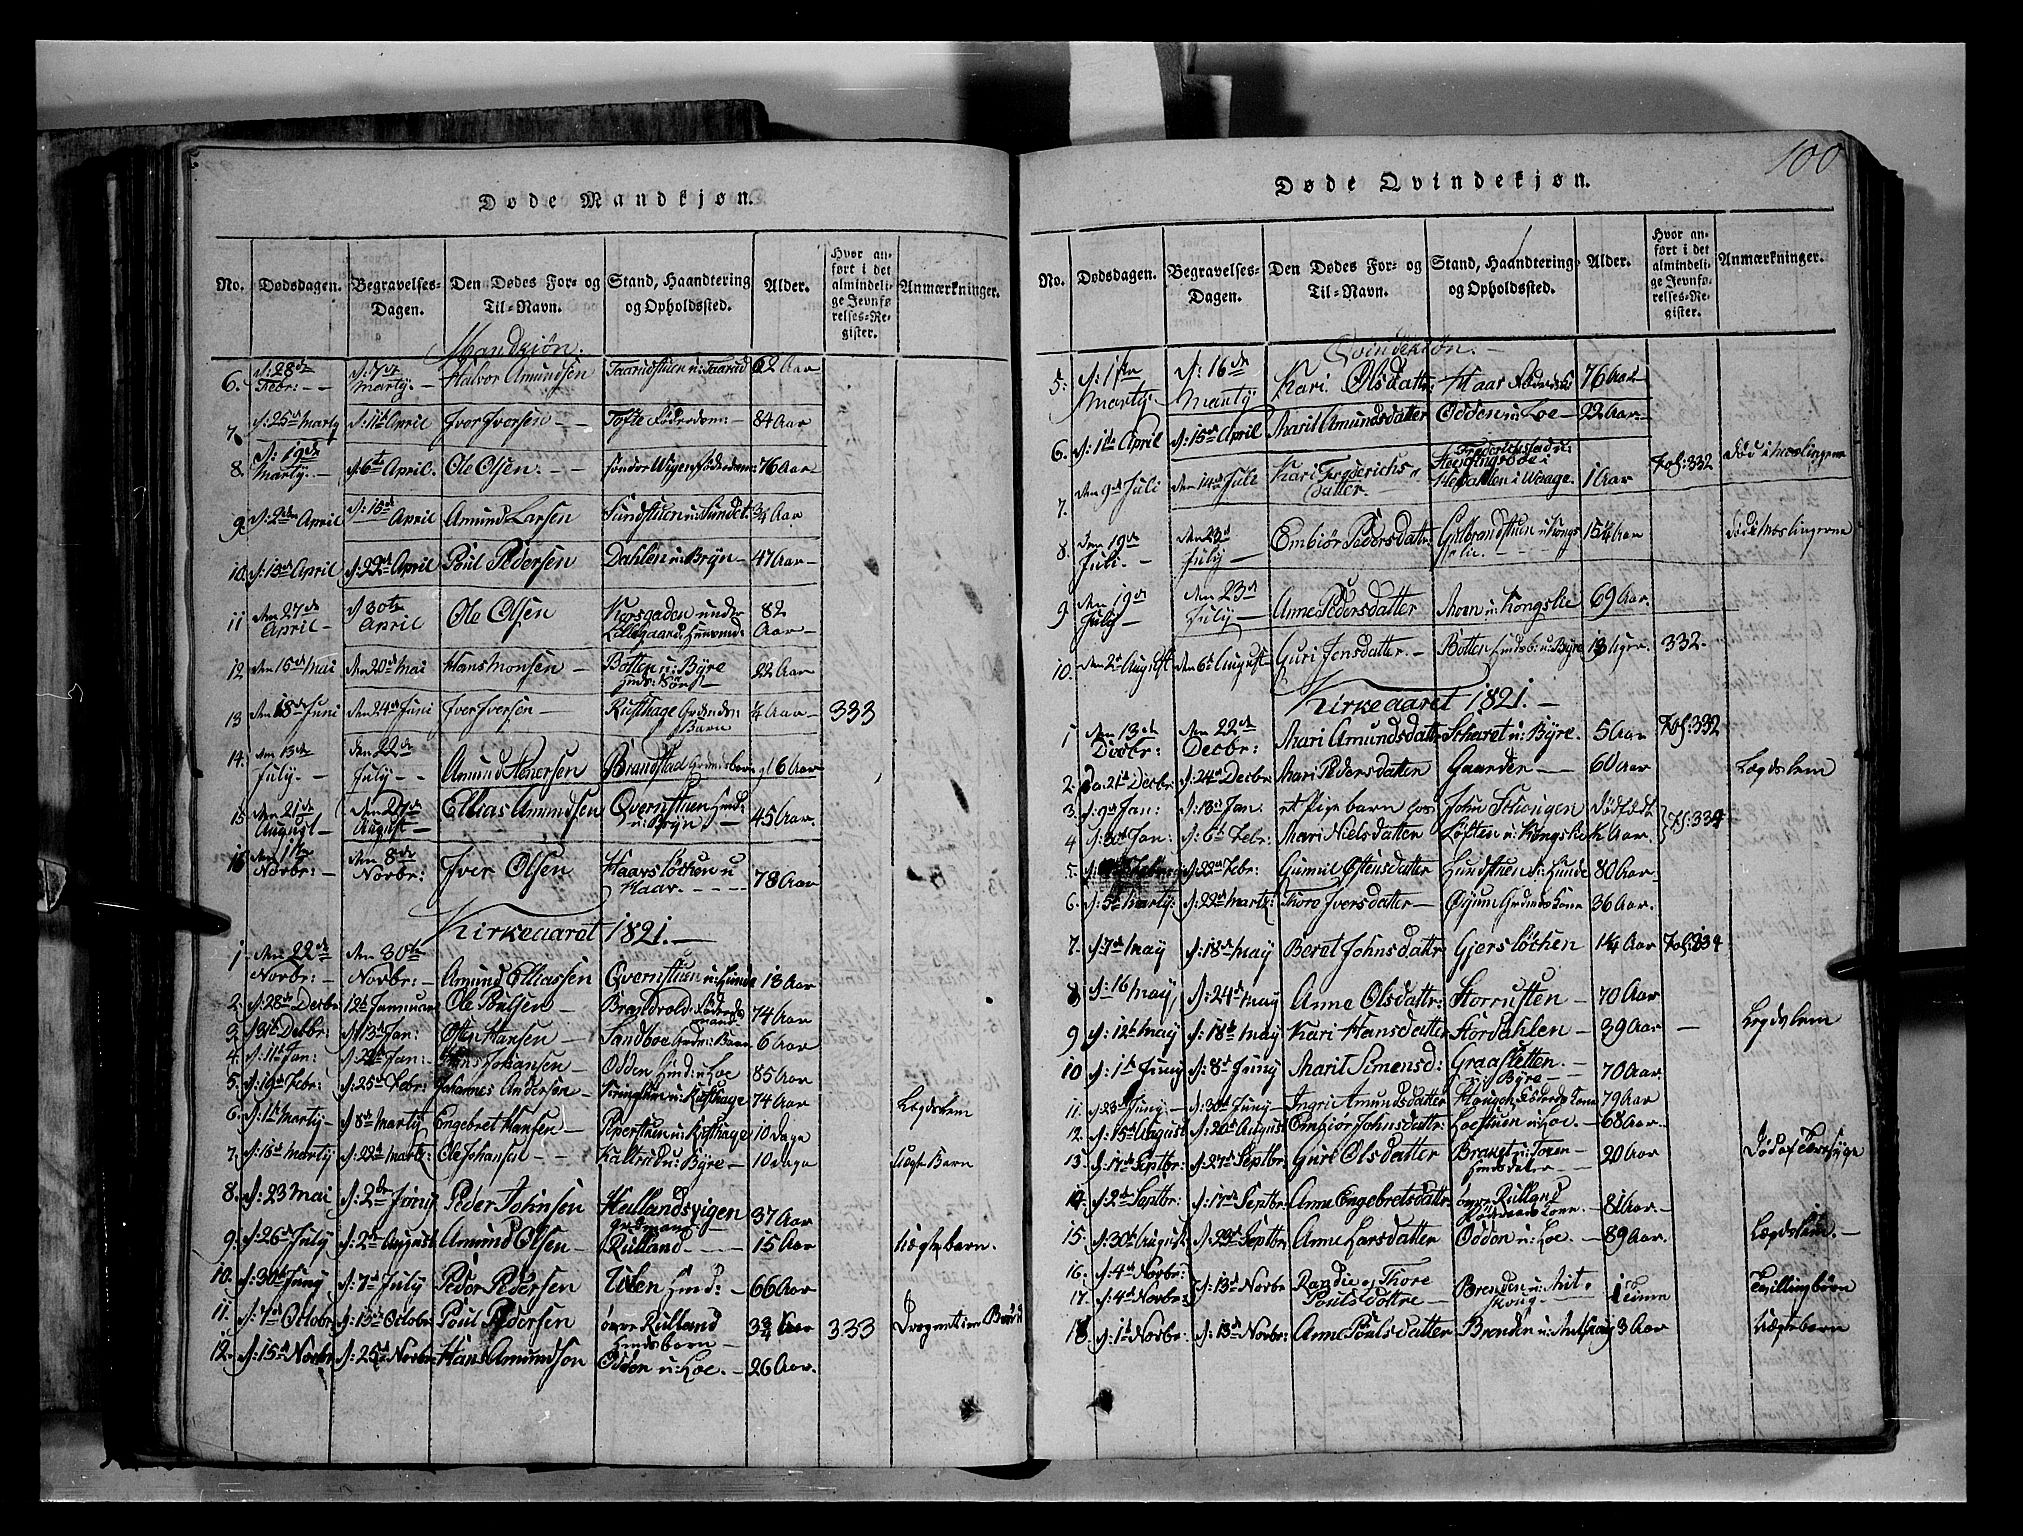 100
Døde Mandkjøn.
No. Dødsdagen. Begravelses-Dagen. Den Dødes For- og Til-Navn. Stand, Haandtering og Opholdssted. Alder. Hvor anført i det almindelige Jevnførelses-Register. Anmærkninger.
Mandkiøn:
6. d: 28de Febr: d: 7de Marty. Halvor Amundsen Taarudstuen u: Taarud 62 Aar
7. d: 25de Marty d: 11te April Iver Iversen Tofte Föderdom: 84 Aar
8. d: 19de Marty. d: 6te April. Ole Olsen. Söndor Wigen 76 Aar
9. d: 2den April d: 15de April Amund Larsen Sundstuen u: Sundet 3/4 Aar
10. d: 13de April d: 22de April Poul Pedersen Dahlen u: Bryn 47 Aar
11 den 27de April d 30te April Ole Olsen Korsgaden under Lillegaard 82 Aar
12. den 15de Mai den 20de Mai Hans Monsen Botten u: Byre 22 Aar
13 den 18de Juni den 24de Juni Iver Iversen Rusthage Barn 1/4 Aar 333
14. den 13de July. den 22de July. Amund Brandstad 6 Aar
15 den 21de August den 27de August Ellias Amundsen Qvernstuen u: Bryn. 45 Aar.
16 den 1ste Novbr: den 8de Novbr: Iver Olsen Haarslöchen u Haar. 78 Aar
Kirkeaaret 1821.
1 den 22de Novbr: den 30te Novbr: Amund Elliassen Qvernstuen u: Hunde 13 Aar
2. d: 28de Decbr: 12te Januari Ole Poulsen 74 Aar
3. 31te Decbr: d: 13de Jan: Osten Hansen Sandboe Barn 6 Aar
4. d: 11te Jan: d: 21de Jan: Hans Johansen Odden u: Loe 85 Aar
5. d: 19de Febr: d: 25de Febr: Johannes Andersen u: Rusthage 74 Aar Legdslem
6. d: 1ste Marty d: 8de Marty Engebret Hansen Peperstuen u: Rusthage 10 Dage
7. d: 16de Marty d: 22de Martz Ole Johansen u: Byre 10 Dage Uægte Barn
8. d: 23 Mai d: 2den Juny Peder Johnsen Heilandsvigen 37 Aar
9. d: 26de July d: 2de August Amund Olsen Rulland 15 Aar Uægte barn.
10. d: 30te Juny d: 7de July Peder Pedersen Uslen 66 Aar
11. d: 7de Octobr: d: 15de Octobr: Poul Pedersen övre Rulland Huusborn 3 3/4 Aar 333
12. d: 15de Novbr: d: 25de Novbr: Hans Amundsön Oddon u: Loe. 26 Aar.
Døde Qvindekjøn.
No. Dødsdagen. Begravelses-Dagen. Den Dødes For- og Til-Navn. Stand, Haandtering og Opholdssted. Alder. Hvor anført i det almindelige Jevnførelses-Register. Anmærkninger.
Qvindekiøn.
5. d: 1ste Marty. d: 16de Marty. Kari Olsdatter Haar 76 Aar
6. d: 1ste April d: 15de April Marit Amundsdatter Odden u: Loe 22 Aar.
7. den 9de Juli den 14de Juli Kari Frederichsdatter. i Waage. 1 Aar Fol: 332 Död i Meslingerne
8. den 19de Juli. den 23de July Embiör Pedersdatter Gulbrandstuen u: Kongslie. 15 1/4 Aar Död i Meslingerne
9 den 19de July den 23de July Anne Pedersdatter Moen u: Kongslie 69 Aar.
10. den 2de August den 6te August Guri Jensdatter. Botten u: Byre 13 Uger. 332.
Kirkeaaret 1821.
1 den 13de Decbr: den 22de Decbr: Mari Amundsdatter Skaret u: Byre. 5 Aar Fol: 332
2. 21de Decbr: d: 24de Decbr: Mari Pedersdatter Gaarder 60 Aar Lægdslem
3. d: 9de Jan: d: 18de Jan: et Pige barn John Skougen dödfödt Fol: 334
4 d: Jan: d: 6te Febr: Mari Nielsdatter Löften u: Kongslie 1/2 Aar.
5. d: Febr: d: 22de Febr: Gunnil Ostensdatter Hundstuen u: Hunde 80 Aar
6. d: 5te Marty: d: 22de Martz: Thore Iversdatter Öijum 36 Aar.
7. d: 7de May d: 18de May Beret Johnsdatter Giorslöchen 1 1/4 Aar Fol: 334
8 d: 16 May d: 24de May Anne Olsdatter: Storrusten 70 Aar
9 d: 12te May d: 18de May Kari Hansdatter Stordahlen 39 Aar Legdslem
10 d: 1ste Juny d: 8de Juny Marit Simensd: Graasletten u: Byre 70 Aar.
11. d: 23de Juny d: 30te Juny Ingri Amundsdatter 79 Aar
12. d: 15de August d: 20de August Embiör Johnsdatter: Loestuen u: Loe. 68 Aar.
13. d: 17de Septbr: d: 27de Septbr: Guri Olsdatter 20 Aar
14. d: 2de Septbr: d: 17de Septbr: Anne Engebretsdatter övre Rulland 81 Aar
15. d: 30te August d: 23de Septbr: Anne Larsdatter Oddon u: Loe. 89 Aar. Lægdslem.
16. d: 4de Novbr: d: 13de Novbr: Randi og Thore Poulsdöttre Brenden u: 1 Time Tvillingbörn
17. d: 4de Novbr:
18. d: 1ste Novbr: d: 13de Novbr: Anne Poulsdatter Brenden u: 3 Aar Uægte barn